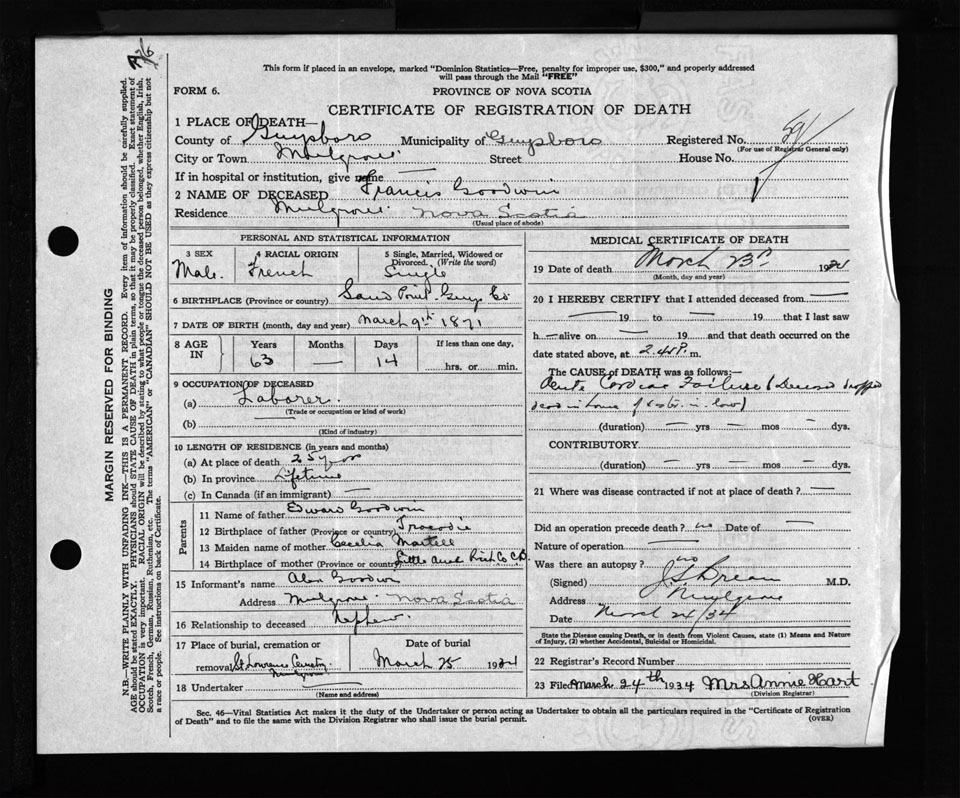 This form if placed in an envelope, marked "Dominion Statistics—Free, penalty for improper use, $300," and properly addressed
will pass through the Mail "FREE"
FORM 6.
PROVINCE OF NOVA SCOTIA
CERTIFICATE OF REGISTRATION OF DEATH
1 PLACE OF DEATH—
County of Guysboro Municipality of Guysboro Registered No.
(For use of Registrar General only)
City or Town Mulgrave. Street House No.
If in hospital or institution, give name —
2 NAME OF DECEASED Francis Goodwin
Residence Mulgrave. Nova Scotia
(Usual place of abode)
PERSONAL AND STATISTICAL INFORMATION
3 SEX 4 RACIAL ORIGIN 5 Single, Married, Widowed or
Divorced. (Write the word)
Male. French Single
6 BIRTHPLACE (Province or country) Sand Point Guys. Co
7 DATE OF BIRTH (month, day and year) March 9th 1871
8 AGE IN Years Months Days If less than one day,
63 — 14 hrs. or min.
9 OCCUPATION OF DECEASED
(a) Laborer.
(Trade or occupation or kind of work)
(b) —
(Kind of industry)
10 LENGTH OF RESIDENCE (in years and months)
(a) At place of death 25 years
(b) In province Lifetime
(c) In Canada (if an immigrant) —
Parents
11 Name of father Edward Goodwin
12 Birthplace of father (Province or country) Tracadie
13 Maiden name of mother Cecelia Martell
14 Birthplace of mother (Province or country) Rich. Co C.B.
15 Informant's name Alex Goodwin
Address Mulgrave. Nova Scotia
16 Relationship to deceased Nephew.
17 Place of burial, cremation or Date of burial
removal St Lawrence Cemetery March 25 1934
Mulgrave
18 Undertaker —
(Name and address)
MEDICAL CERTIFICATE OF DEATH
19 Date of death March 23rd 1934
(Month, day and year)
20 I HEREBY CERTIFY that I attended deceased from —
— 19 to — 19 that I last saw
h — alive on — 19 and that death occurred on the
date stated above, at 2.45 P. m.
The CAUSE of DEATH was as follows:—
Acute Cardiac Failure (Deceased dropped
dead in house of sister-in-law)
(duration) — yrs — mos — dys.
CONTRIBUTORY
(duration) — yrs — mos — dys.
21 Where was disease contracted if not at place of death? —
Did an operation precede death? no Date of —
Nature of operation —
Was there an autopsy? no
(Signed) M.D.
Address Mulgrave
Date March 24/34
State the Disease causing Death, or in death from Violent Causes, state (1) Means and Nature
of Injury, (2) whether Accidental, Suicidal or Homicidal.
22 Registrar's Record Number
23 Filed March 24th 1934 Mrs Annie Hart
(Division Registrar)
Sec. 46—Vital Statistics Act makes it the duty of the Undertaker or person acting as Undertaker to obtain all the particulars required in the "Certificate of Registration
of Death" and to file the same with the Division Registrar who shall issue the burial permit.
(OVER)
MARGIN RESERVED FOR BINDING
N.B.—WRITE PLAINLY WITH UNFADING INK—THIS IS A PERMANENT RECORD. Every item of information should be carefully supplied.
AGE should be stated EXACTLY. PHYSICIANS should STATE CAUSE OF DEATH in plain terms, so that it may be properly classified. Exact statement of
OCCUPATION is very important. RACIAL ORIGIN will be described by stating to what people or tongue the deceased person belonged, whether English, Irish,
Scotch, French, German, Russian, Ruthenian, etc. The terms "AMERICAN" or "CANADIAN" SHOULD NOT BE USED as they express citizenship but not
a race or people. See instructions on back of Certificate.